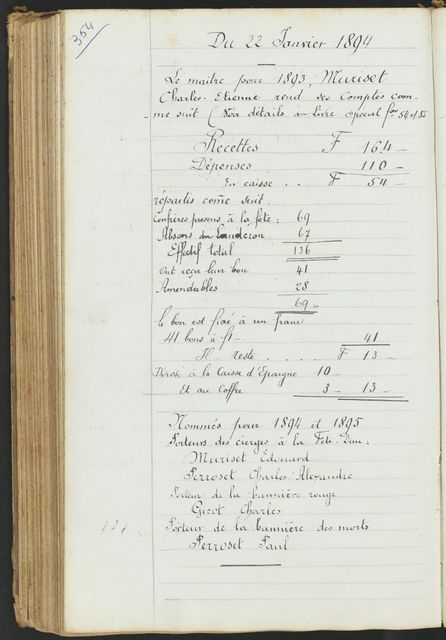 354
Du 22 Janvier 1894
Le maitre pour 1893, Muriset
Charles-Etienne rend ses Comptes com-
me suit (Voir détails au livre special fos 54 et 55
Recettes F 164 –
Dépenses 110 –
En caisse . . F 54 –
répartis comme suit.
Confrères présens à la fête : 69
Absens du Landeron 67
Effectif total 136
Ont reçu leur bon 41
Amendables 28
69 "
le bon est fixé à un franc
41 bons à f1 – 41 –
Il reste . . . . . F 13 –
Versé à la Caisse d'Epargne 10 –
Et au Coffre 3 – 13 –
Nommés pour 1894 et 1895
Porteurs des cierges à la Fête-Dieu :
Muriset Edouard
Perroset Charles-Alexandre
Porteur de la bannière rouge
Gicot Charles
Porteur de la bannière des morts
Perroset Paul